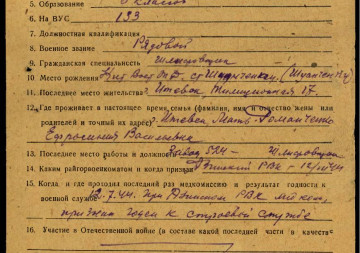 5. Образование классов
6. На ВУС 133
7. Должностная квалификация
8. Военное звание Рядовой
9. Гражданская специальность шлифовщик
10. Место рождения
11. Последнее место жительства Ижевск, Милиционная 17
12. Где проживает в настоящее время семья (фамилия, имя и отчество жены или
родителей и точный их адрес). Ижевск Мать Романченко
Ефросиния Васильевна
13. Последнее место работы и должность Завод 524 — Шлифовщик
14. Каким райгорвоенкоматом и когда призван РВК —
15. Когда и где проходил последний раз медкомиссию и результат годности к
военной службе 12.7.44. при РВК
признан годен к строевой службе
16. Участие в Отечественной войне (в составе какой последней части и в качестве